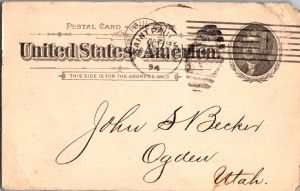 POSTAL CARD
SAINT PAUL
United States of America.
94
THIS SIDE IS FOR THE ADDRESS ONLY.
John S Becker
Ogden
Utah.